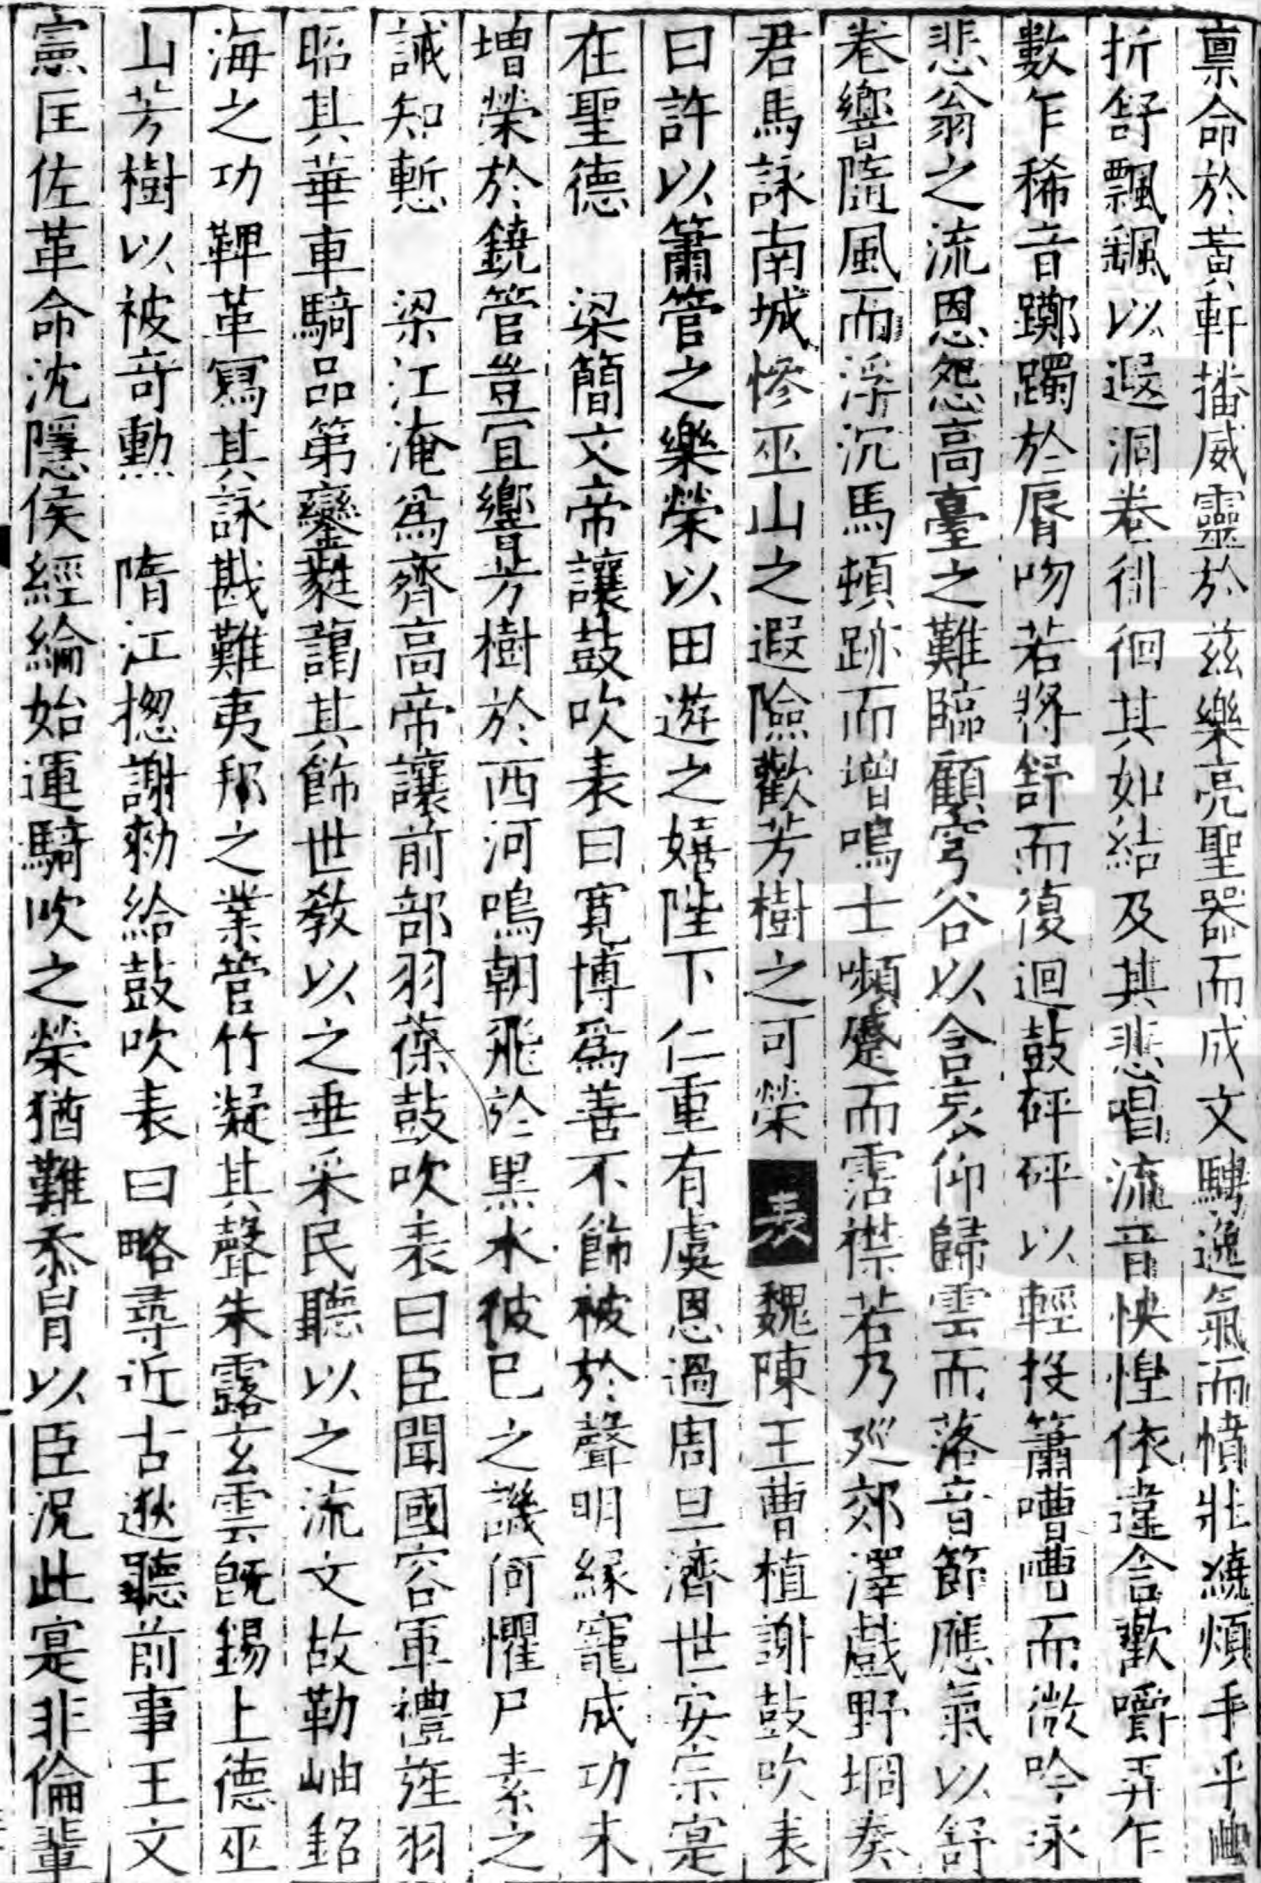 禀命於黃軒播威靈於茲樂亮聖器而成文騁逸氣而憤壯繞煩手乎曲
折舒飄颻以遐洞卷徘徊其如結及其悲唱流音怏惶依違含歡嚼弄乍
數乍稀音躑躅於脣吻若將舒而復迴鼓砰砰以輕投簫嘈嘈而微吟泳
悲翁之流恩怨高臺之難臨顧穹谷以含哀仰歸雲而落音節應氣以舒
卷響隨風而浮沉馬頓跡而增鳴士嚬蹙而霑襟若乃廵郊澤戲野坰奏
君馬詠南城慘巫山之遐險歡芳樹之可榮 表 魏陳王曹植謝鼓吹表
曰許以簫管之樂榮以田遊之嬉陛下仁重有虞恩過周旦濟世安宗寔
在聖德 梁簡文帝讓鼓吹表曰寛博爲善不飾被於聲明緣寵成功未
增榮於鐃管豈宜響芳樹於西河鳴朝飛於黑水彼巳之譏何懼尸素之
誡知慙 梁江淹爲齊高帝讓前部羽葆鼓吹表曰臣聞國容軍禮旌羽
昭其華車騎品第鑾蕤藹其飾世教以之垂采民聽以之流文故勒岫銘
海之功鞞革寫其詠戡難夷邦之業管竹凝其聲朱露玄雲旣錫上德巫
山芳樹以被竒勳 隋江揔謝勑給鼓吹表曰略尋近古逖聽前事王文
憲匡佐革命沈隱侯經綸始運騎吹之榮猶難忝冐以臣況此寔非倫輩